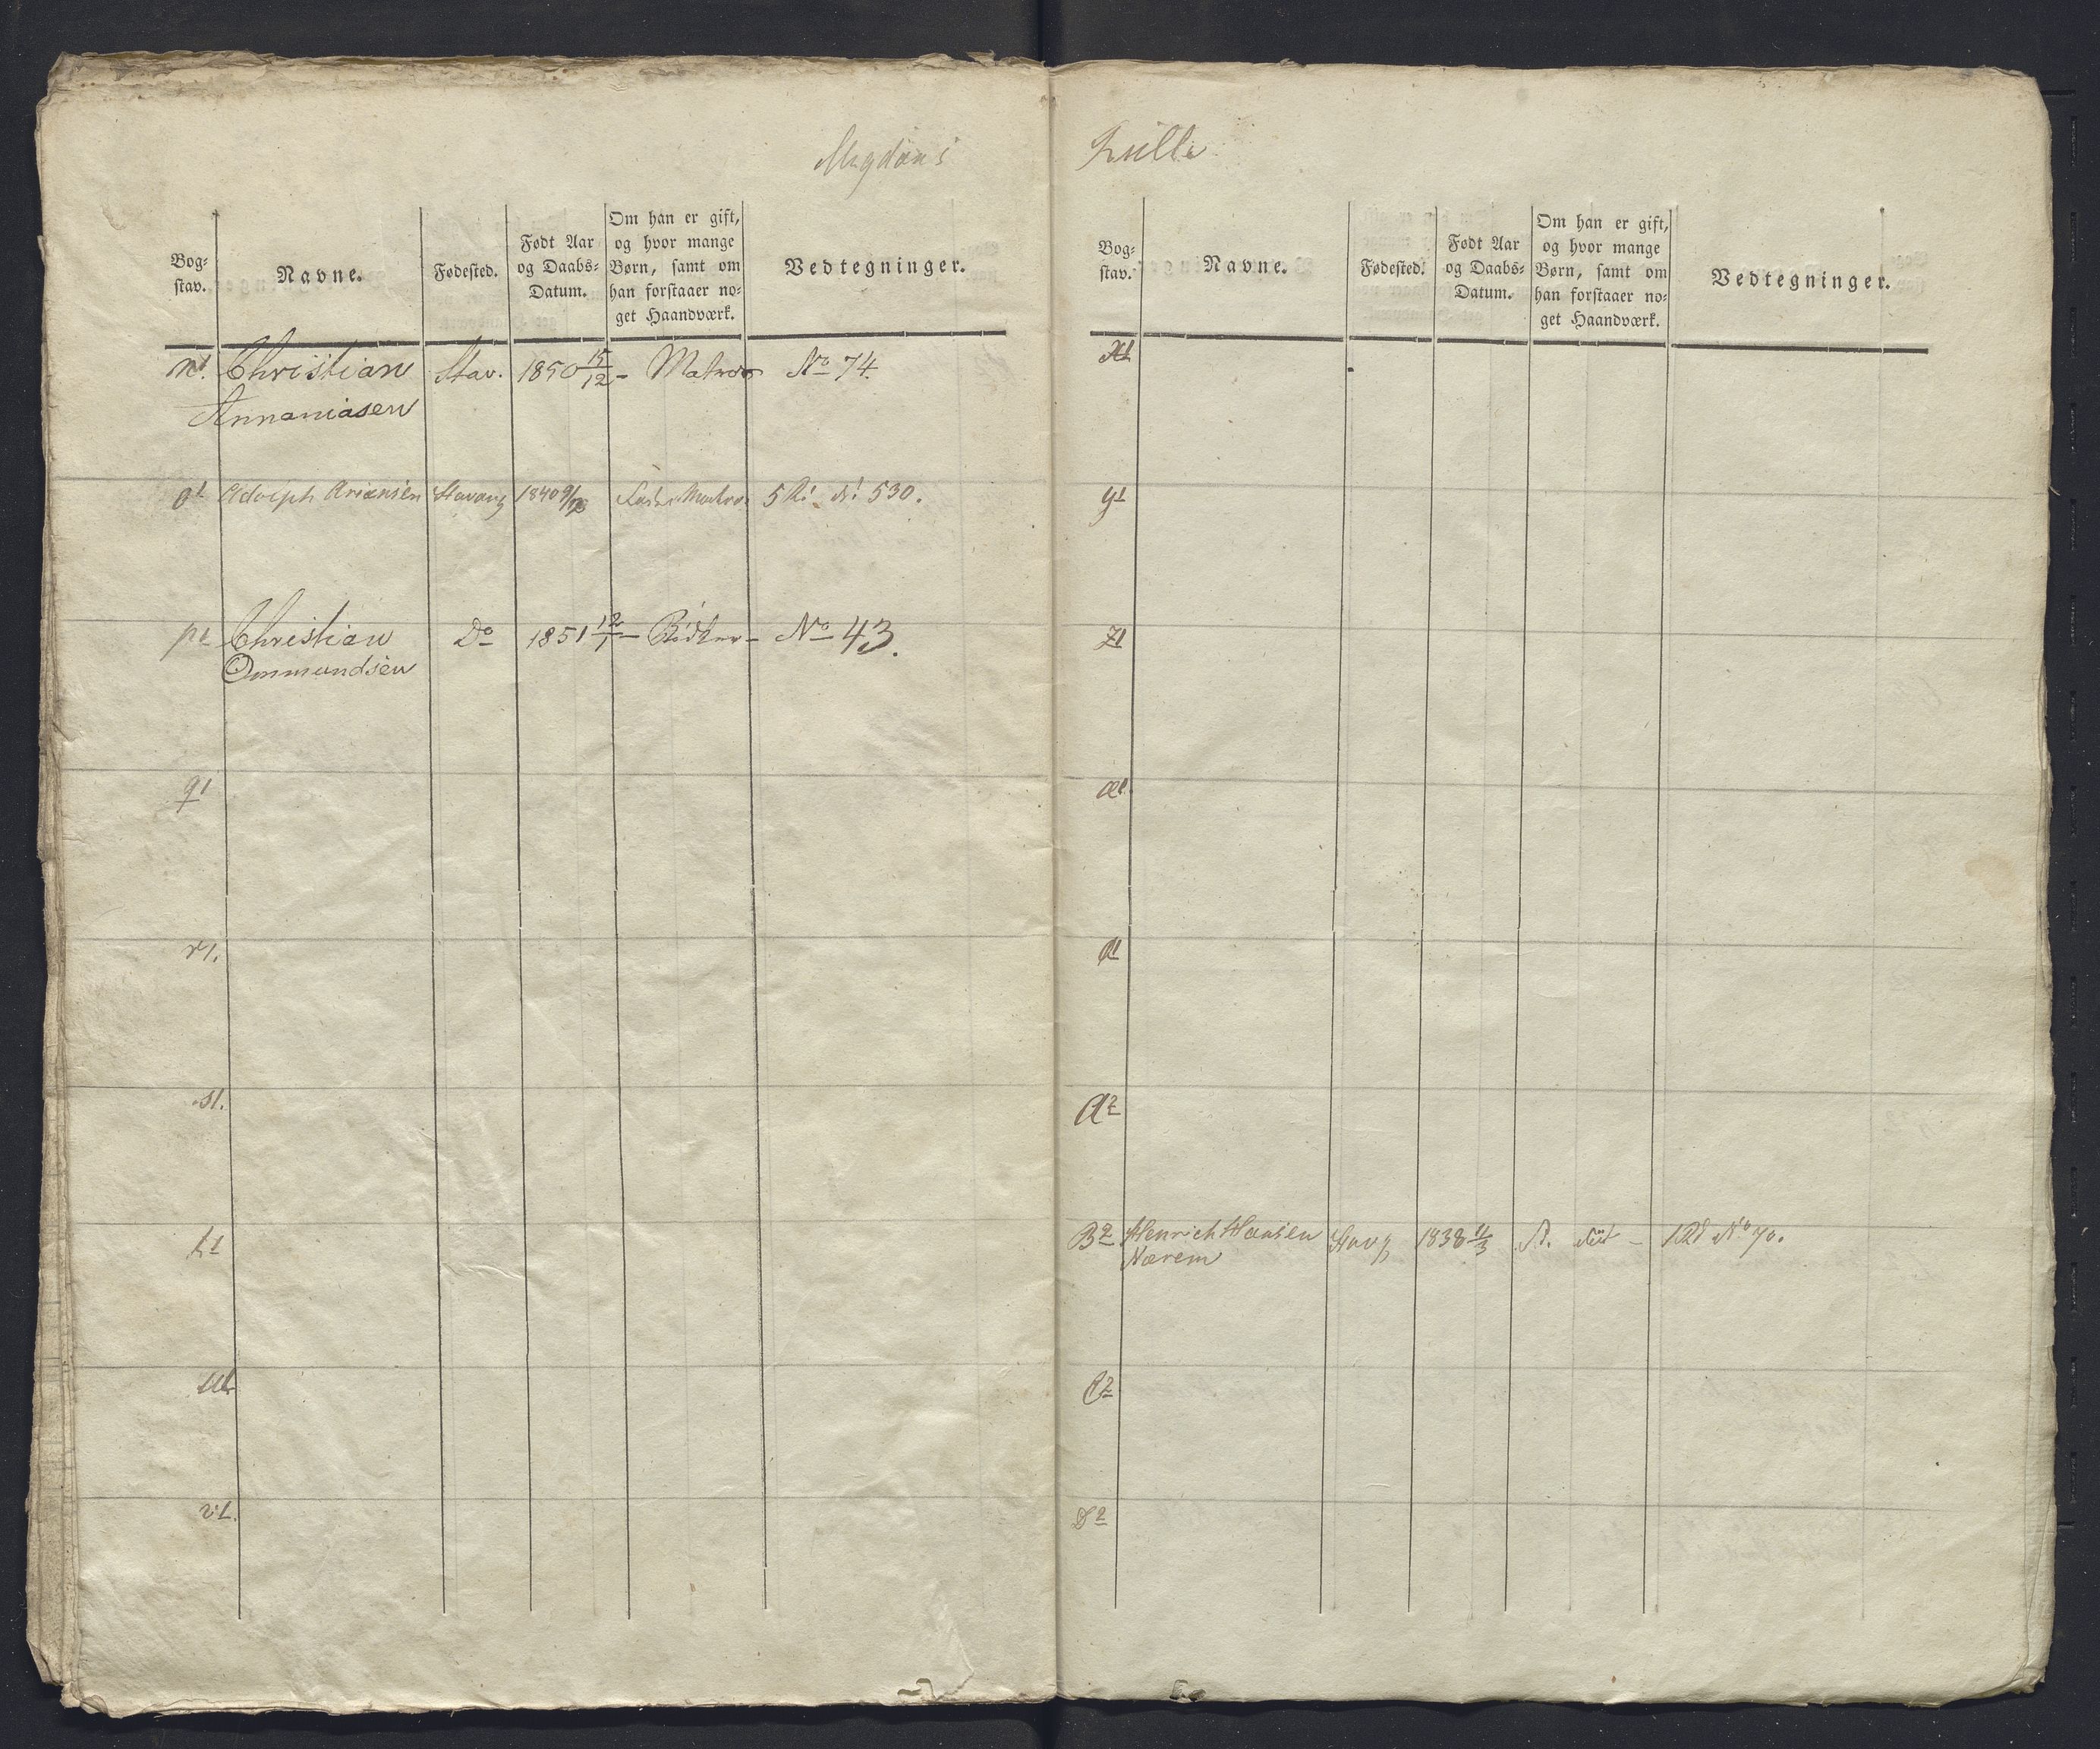 Ungdoms
Bog-
stav.
Navne.
Fødested.
Født Aar
og Daabs-
Datum.
Om han er gift,
og hvor mange
Børn, samt om
han forstaaer no-
get Haandværk.
Vedtegninger.
n1. Christian Stav. 1850 15/12 - Matros No 74.
Annaniasen
o1 Adolph Ariansen Stavang 1840 Fader Matros 5 530.
p1 Christian Do 1851 12/1 - Bødker - No 43.
Ommundsen
q1
r1.
s1.
t1
u1
v1.
Rulle
Bog-
stav.
Navne.
Fødested.
Født Aar
og Daabs-
Datum.
Om han er gift,
og hvor mange
Børn, samt om
han forstaaer no-
get Haandværk.
Vedtegninger.
x1
y1
z1
æ1
ø1
A2
B2 Henrich Hansen Stavg 1838 11/3 No 70.
Nærem
C2
D2